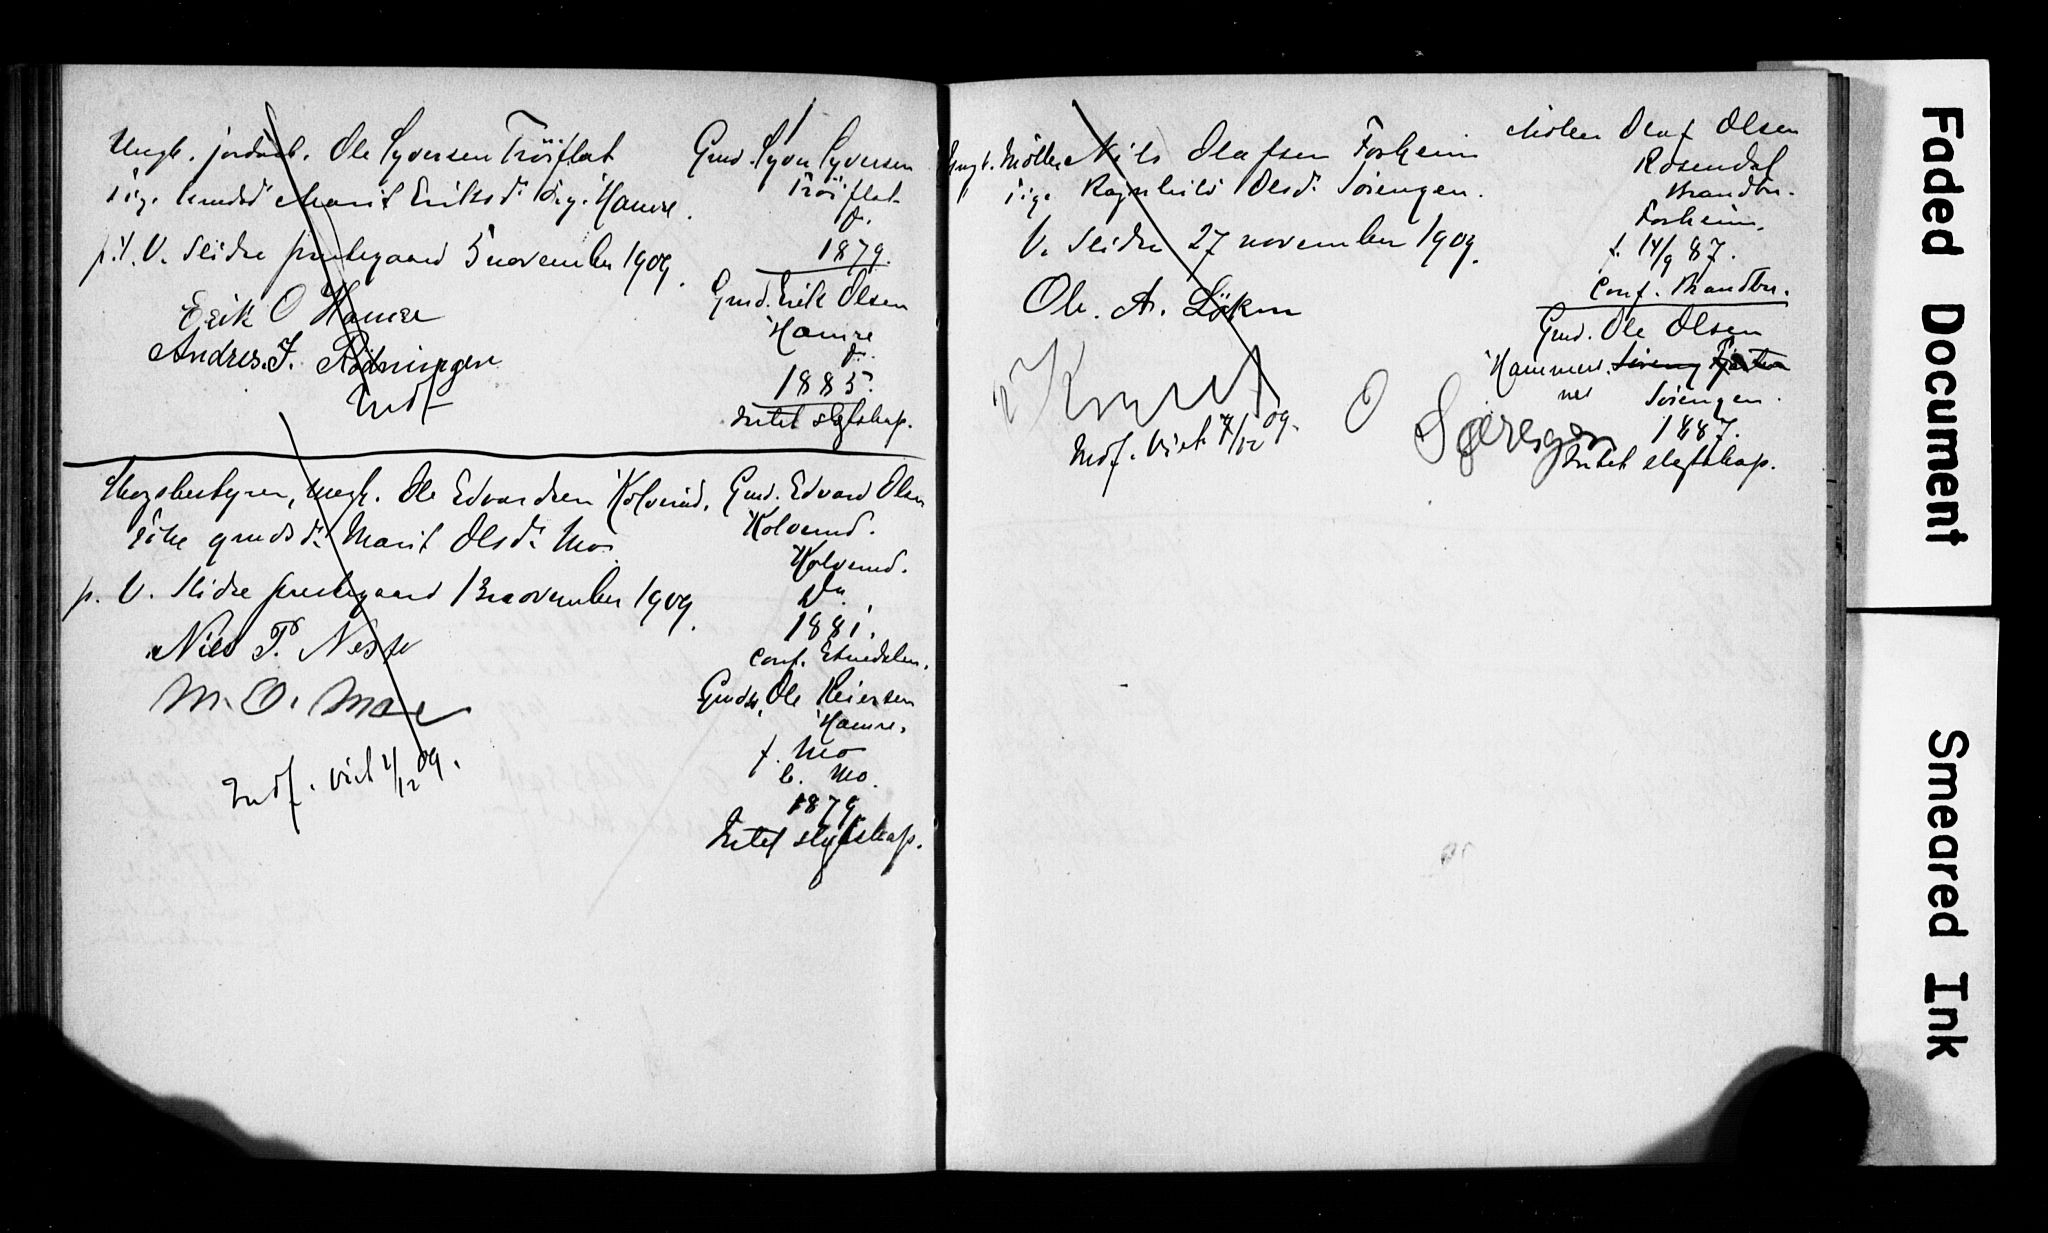 Ungk. jordarb. Ole Syversen Tröiflat
pige Marit Eriksdr. Hamre.
p. t. V. Slidre prestegaard 5 november 1909.
Erik O Hamre
Andres. J. Rödningen
Indf
Gmd. Syver Syversen
Tröiflat
1879.
Gmd. Erik Olsen
Hamre
1885.
Intet slegtskap.
Skogsbestyrer, ungk. Ole Edvardsen Kolverud.
pike gmds dr. Marit Olsdr. Mo
p. V. Slidre prestegaard 13 november 1909.
Nils P. Nesse
M. O. Moe
Indf. viet 4/12 09.
Gmd. Edvard Olsen
Kolverud.
Kolverud.
1881.
Conf. Etnedalen.
Ole Reiersen
Hamre.
f. Mo
b. Mo.
1879
Intet slegtskap.
Ungk. Möller Nils Olafsen Forheim
pige Ragnhild Olsdr. Söiengen.
V. Slidre 27 november 1909.
Ole. A. Löken
Knut O Søiengen
Indf. Viet 4/12 09.
Möller Olaf Olsen
Rosendal
Brandbu.
Forheim.
f. 14/9 87.
Conf. Brandbu.
Gmd. Ole Olsen
Hammeren
Söiengen.
1887.
Intet slegtskap.
Faded Document
Smeared Ink